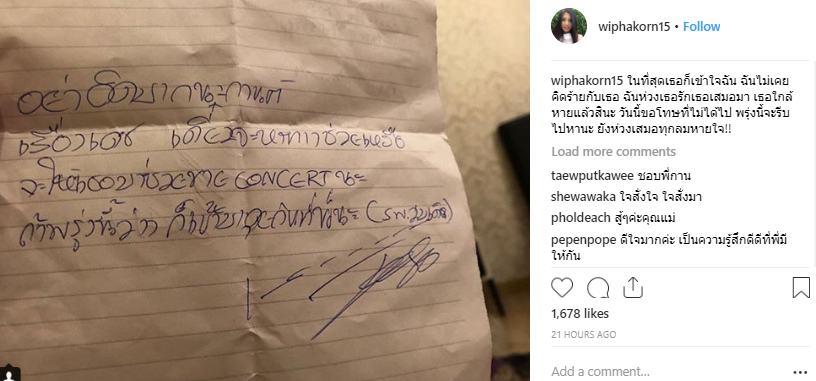 อย่าคิดมากนะกานต์
เรื่องเดช เดี๋ยวจะหาทางช่วยเหลือ
จะให้เสือบช่วยหาย CONCERT นะ
ถ้าพรุ่งนี้ว่าง ก็แวะมาคุยกันที่ (รพ. นะ
wiphakorn15 • Follow
wiphakorn15 ในที่สุดเธอก็เข้าใจฉัน ฉันไม่เคย
คิดร้ายกับเธอ ฉันห่วงเธอรักเธอเสมอมา เธอใกล้
หายแล้วสินะ วันนี้ขอโทษที่ไม่ได้ไป พรุ่งนี้จะรีบ
ไปหานะ ยังห่วงเสมอทุกลมหายใจ!!
Load more comments
taewputkawee ชอบพี่กาน
shewawaka ใจสั่งใจ ใจสั่งมา
pholdeach สู้ๆค่ะคุณแม่
pepenpope ดีใจมากค่ะ เป็นความรู้สึกดีดีที่พี่มี
ให้กัน
1,678 likes
21 HOURS AGO
Add a comment...